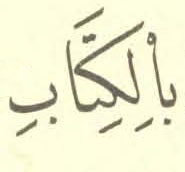 بِالْكِتَابِ